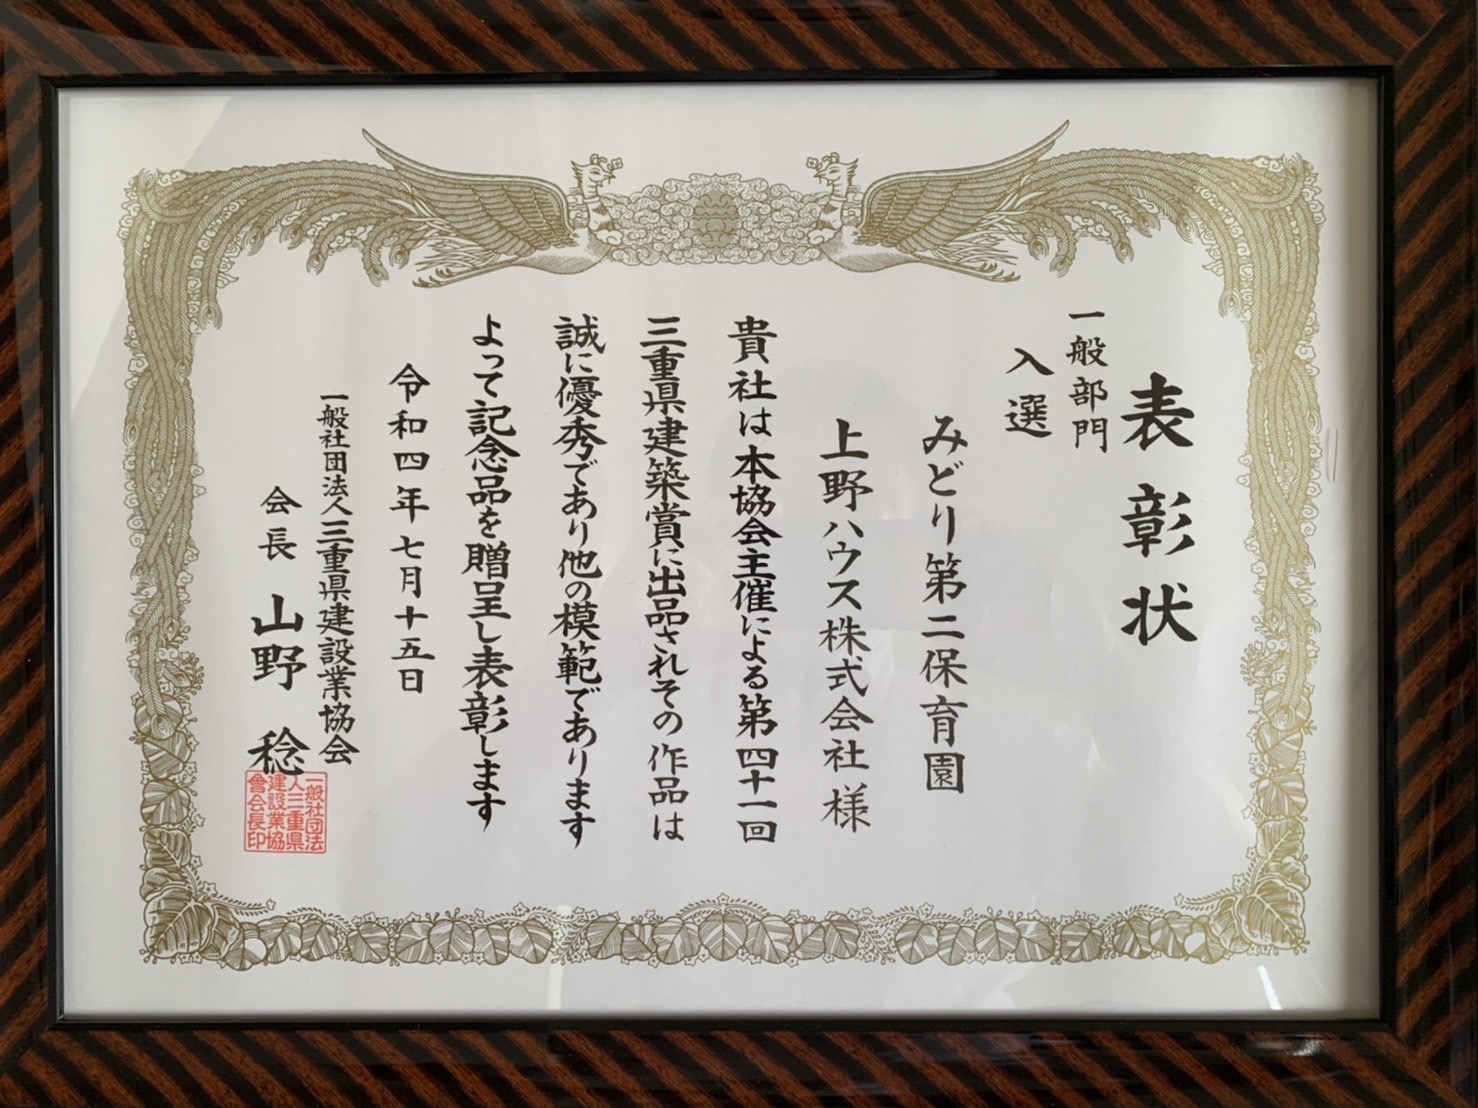 表彰状
一般部門
入選
みどり第二保育園
上野ハウス株式会社様
貴社は本協会主催による第四十一回
三重県建築賞に出品されその作品は
誠に優秀であり他の模範であります
よって記念品を贈呈し表彰します
令和四年七月十五日
一般社団法人三重県建設業協会
会長 山野 稔
一般社団法
人三重県
建設業協
會会長印